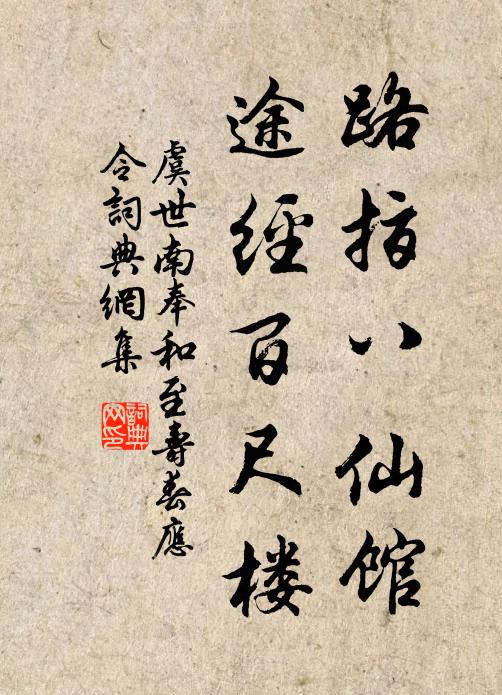 路指八仙馆
途經百尺楼
虞世南奉和至壽春應
令詞典網集
詞典网印